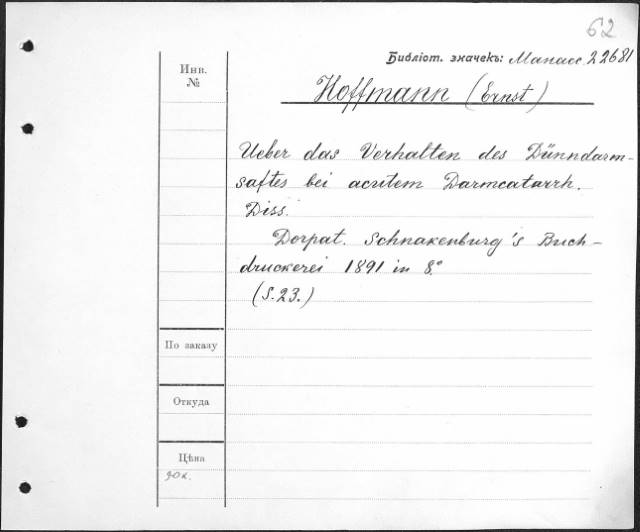 62
Библіот. значекъ: Манасс. 22681
Инв.
№
Hoffmann (Ernst)
Ueber das Verhalten des Dünndarm-
saftes bei acutem Darmcatarrh.
Diss.
Dorpat. Schnakenburg's Buch-
druckerei 1891 in 8.°
(S.23.)
По заказу
Откуда
Цѣна
90к.